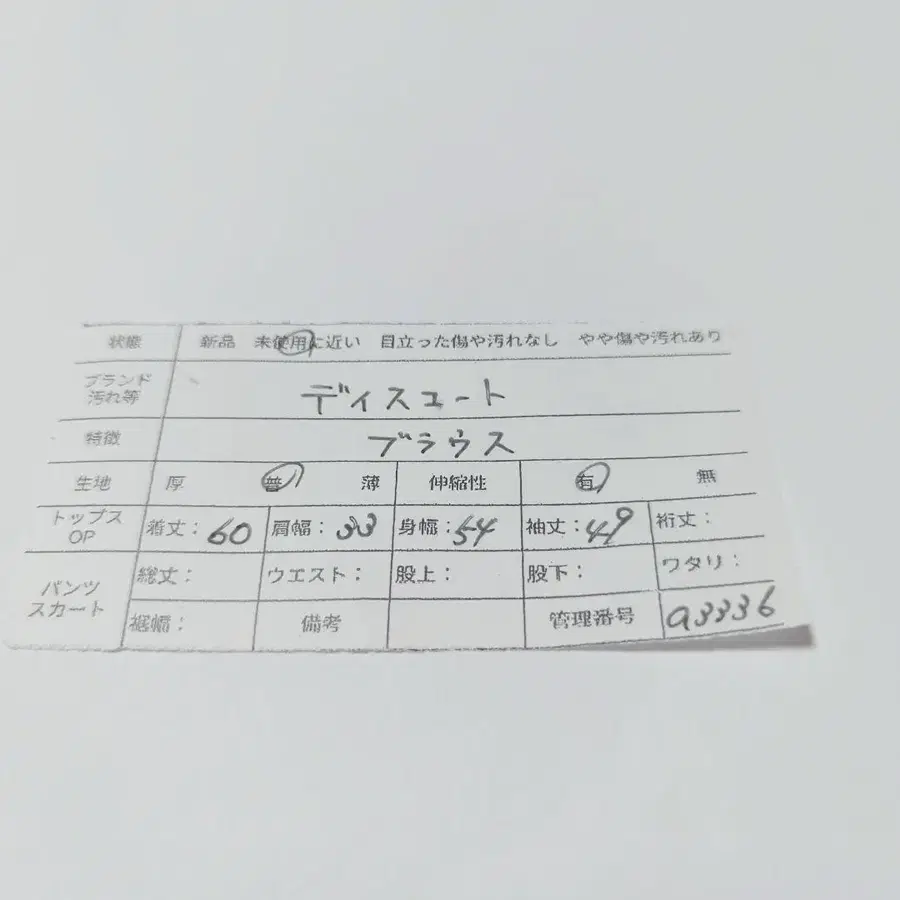 状態 新品 未使用に近い 目立った傷や汚れなし やや傷や汚れあり
ブランド
汚れ等
ディスコート
特徴 ブラウス
生地 厚 普 薄 伸縮性 有 無
トップス
OP
着丈：60 肩幅：33 身幅：54 袖丈：49 裄丈：
パンツ
スカート
総丈： ウエスト： 股上： 股下： ワタリ：
裾幅： 備考 管理番号 a3336